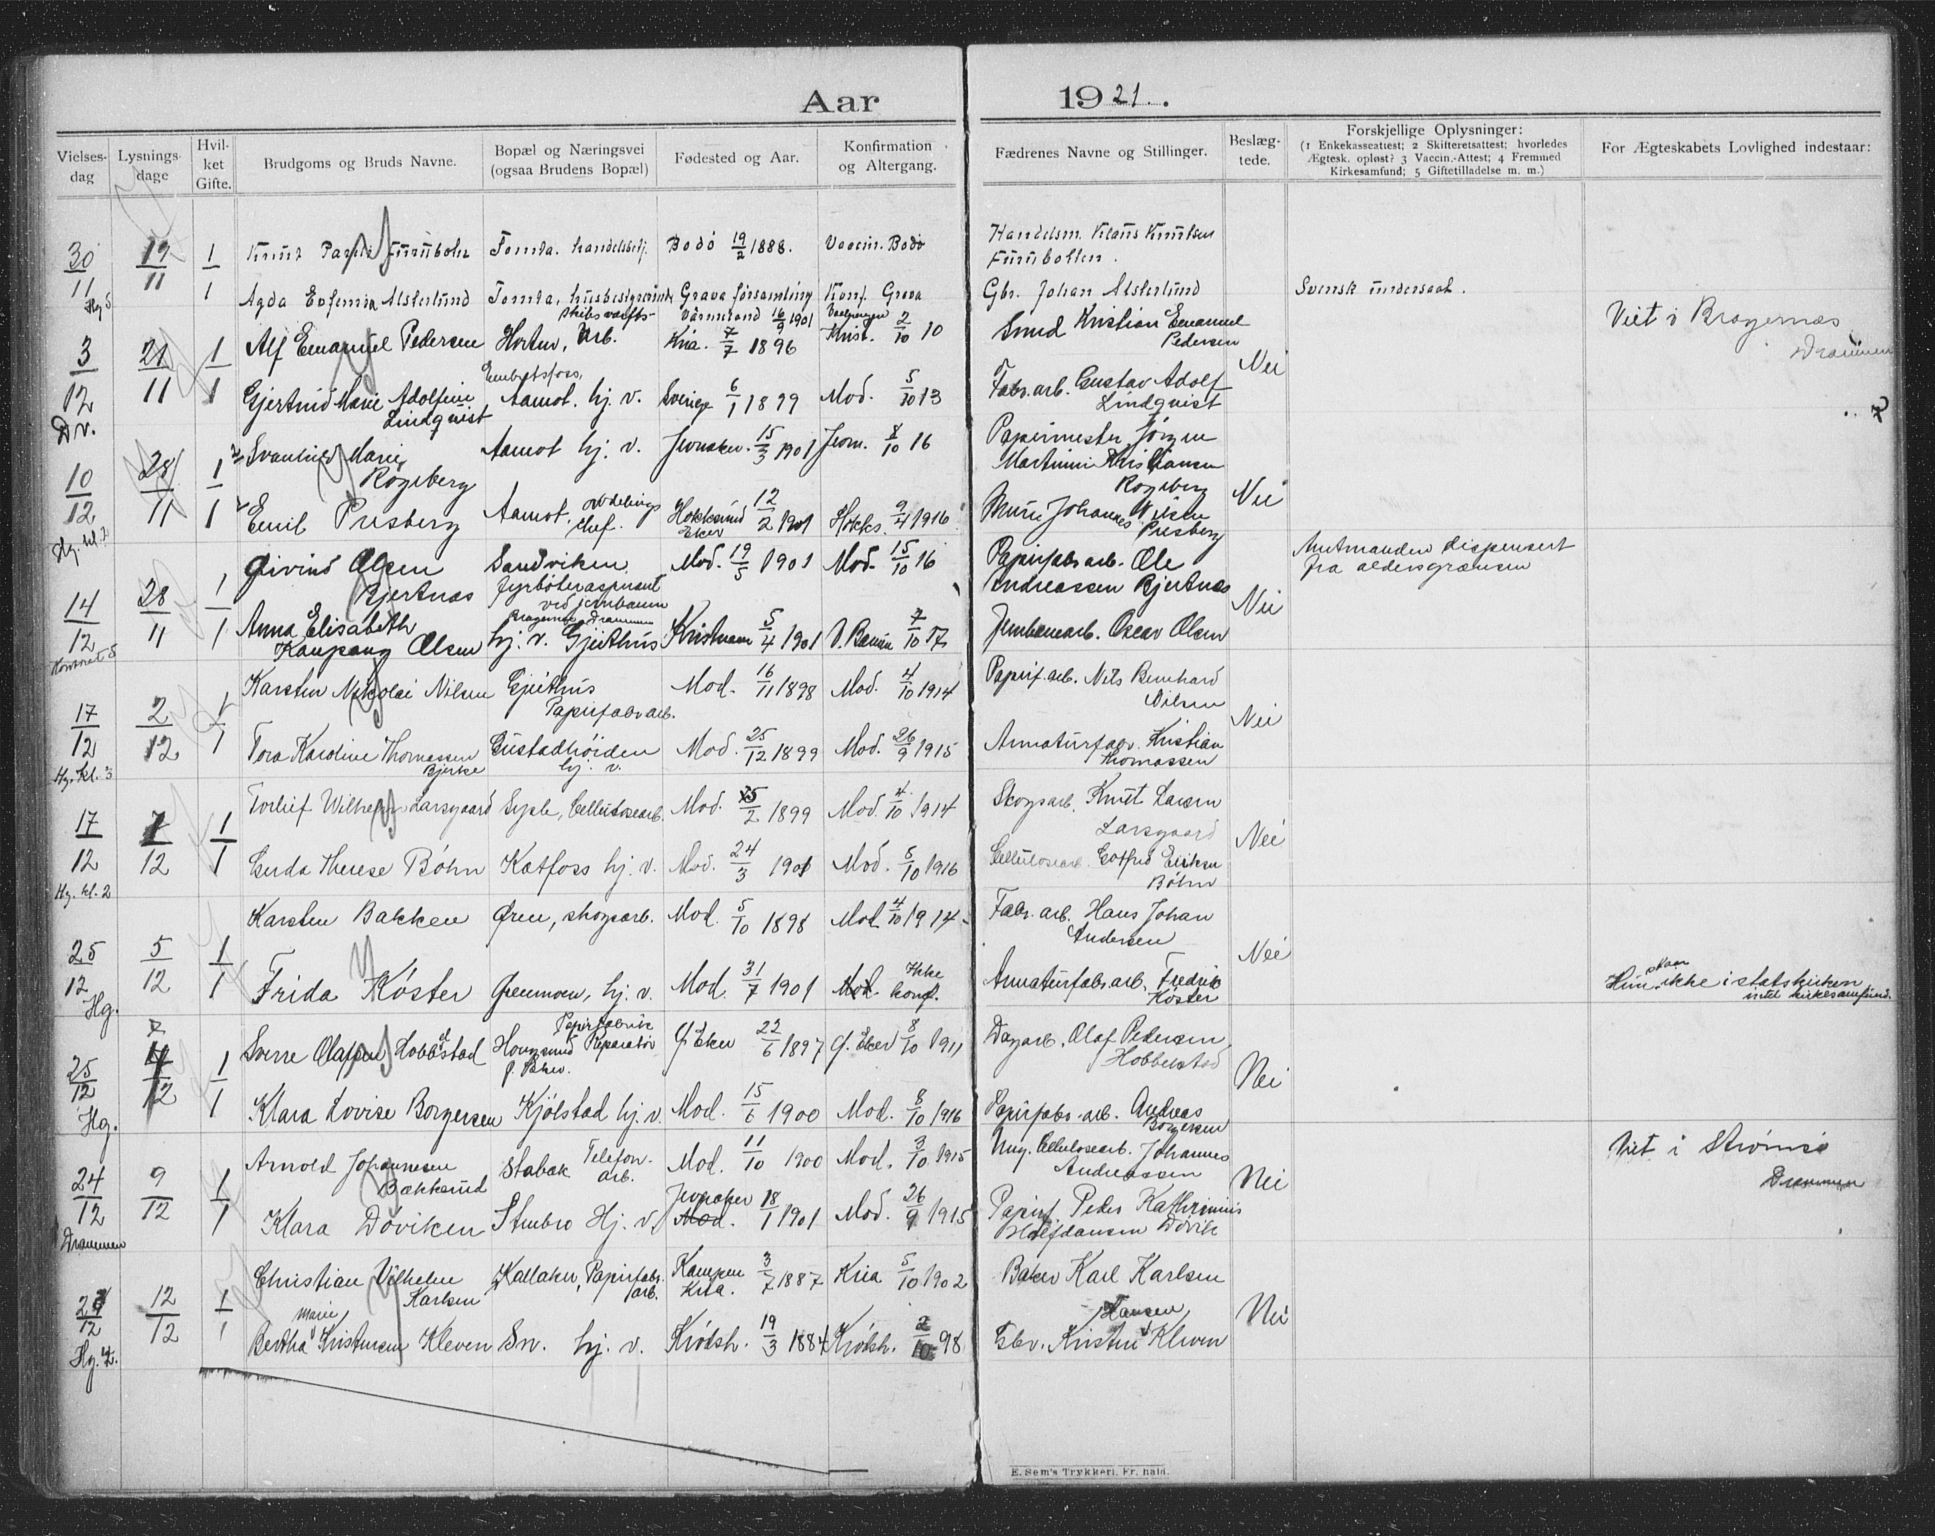 Aar 1921.
Vielses-dag Lysnings-dage Hvil-ket Gifte. Brudgoms og Bruds Navne. Bopæl og Næringsvei (ogsaa Brudens Bopæl) Fødested og Aar. Konfirmation og Altergang. Fædrenes Navne og Stillinger. Beslæg-tede. Forskjellige Oplysninger: (1 Enkekasseattest; 2 Skifteretsattest; hvorledes Ægtesk. opløst? 3 Vaccin.-Attest; 4 Fremmed Kirkesamfund; 5 Giftetilladelse m. m.) For Ægteskabets Lovlighed indestaar:
30/11 19/11 1 Knut Furuholm Tomta. handelsbetj. Bodö 19/2 1888. Vaccin. Bodö Handelsm. Klaus Knutsen
1 Agda Eufemia Alsterlund Tomta, husbestyrerinde Grava församling Värmland 16/9 1901 Konf. Grava Gbr. Johan Alsterlund Svensk undersaat.
3/12 21/11 1 Alf Emanuel Pedersen Horten, skibsværfts-arb. Kria. 7/7 1896 Krist. 2/10 10 Smed Kristian Emanuel Pedersen Nei Viet i Bragernæs Drammen
Dr. 1 Gjertrud Marie Adolfine Lindqvist Embretsfoss, Aamot. hj. v. Sverige 6/1 1899 Mod. 5/10 13 Fabr. arb. Gustav Adolf Lindqvist
10/12 28/11 1 Svanhild Marie Rogsberg Aamot hj. v. Jevnaker. 15/3 1901 Jevn. 8/10 16 Papirmester Jörgen Martinius Kristiansen Rogsberg Nei
Hg. kl. 2 1 Emil Presberg Aamot. avdelings chef. Hokksund Eker 12/2 1901 Hokks. 9/4 1916 Murer Johannes Nilsen Presberg
14/12 28/11 1 Øivind Olsen Bjertnæs Sandviken. fyrbøteraspirant ved jernbanen Mod. 19/5 1901 Mod. 15/10 16 Papirfabr arb. Ole Andreassen Bjertnæs Nei Amtmanden dispensert fra aldersgrænsen
1 Anna Elisabeth Kaupang Olsen hj. v. Gjeithus 5/4 1901 7/10 17 Jernbanearb. Oscar Olsen
17/12 2/12 1 Karsten Nikolai Nilsen Gjeithus Papirfabrarb. Mod. 16/11 1898 Mod. 4/10 1914 Papirf. arb. Nils Bernhard Nilsen Nei
Hg. kl. 3 1 Tora Karoline Thomassen Bjerke Gustadhöiden hj. v. Mod. 25/12 1899 Mod. 26/9 1915 Armaturfabr. Kristian Thomassen
17/12 7/12 1 Torleif Wilhelm Larsgaard Sysle, Cellulosearb. Mod. 25/2 1899 Mod. 4/10 1914 Skogsarb. Knut Larsen Larsgaard Nei
Hg. kl. 2 1 Gerda Therese Bøhn Katfoss hj. v. Mod. 24/3 1901 Mod. 5/10 1916 Cellulosearb. Gotfred Eriksen Bøhn
25/12 5/12 1 Karsten Bakken Øren, skogsarb. Mod. 5/10 1898 Mod 4/10 1914 Fabr. arb. Hans Johan Andersen Nei
Hg. 1 Frida Köster Grenmoen, hj. v. Mod. 31/7 1901 Mod. Ikke konf. Armaturfabr arb. Fredrik Köster Hun staar ikke i statskirken intet kirkesamfund.
25/12 4/12 1 Sverre Olafsen Hobbelstad Hougsund Ø. Eker. Papirfabrik Reparatör Ø Eker 22/6 1897 Ø. Eker 8/10 1911 Dagarb. Olaf Pedersen Hobbelstad Nei
Hg. 1 Klara Lovise Borgersen Kjölstad hj. v. Mod. 15/6 1900 Mod. 8/10 1916 Papirfabr. arb. Andreas Borgersen
24/12 9/12 1 Arnold Johannesen Bækkerud Stabæk Telefon-arb. Mod. 11/10 1900 Mod. 3/10 1915 Ung. Cellulosearb. Johannes Andreassen Nei Viet i Strömsö Drammen
Drammen 1 Klara Döviken Stenbro Hj. v. Jevnaker Mod. 18/1 1901 Mod. 26/9 1915 Papirf Peder Kathrinius Halfdansen Dövik
12/12 1 Christian Vilhelm Karlsen Kallaker, Papirfabr. arb. Kampen Kria. 3/7 1887 Kria 5/10 1902 Baker Karl Karlsen Nei
Hg. 1 Bertha Marie Kristensen Kleven Sn. hj. v. Krödsh. 19/3 1884 Krödsh. 2/10 98 Gbr. Kristen Hansen Kleven
E. Sem's Trykkeri, Fr. hald.